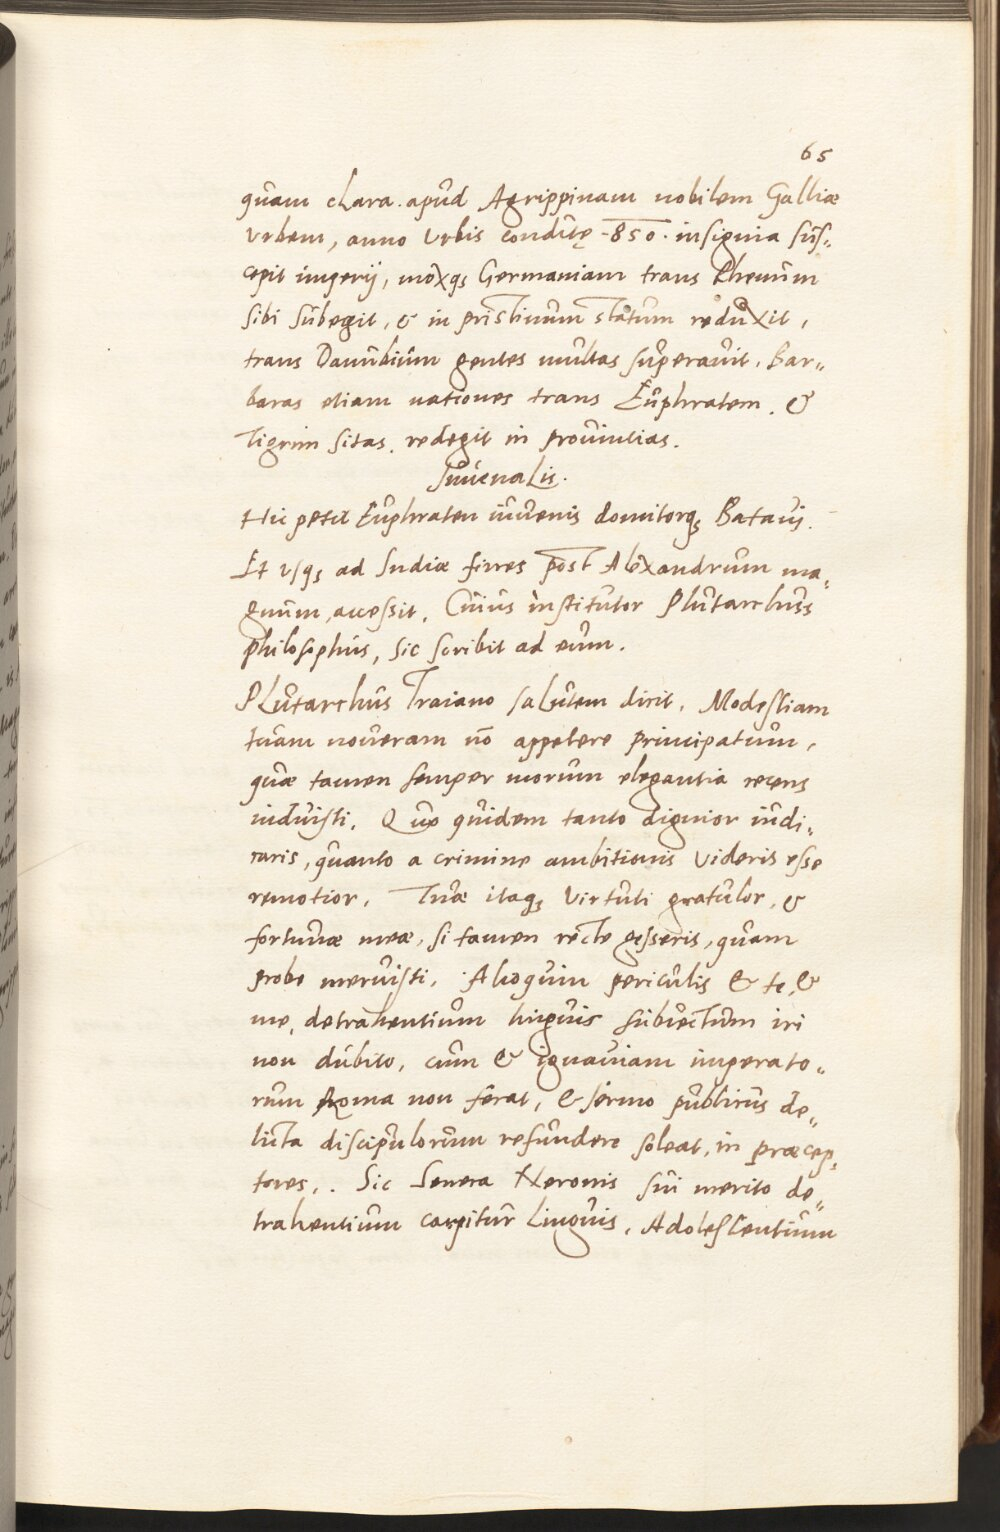 65
quam clara. apud Agrippinam nobilem Galliæ
Vrbem, anno Vrbis conditę ·850· insignia sus„
cepit imperij, moxqꝫ Germaniam trans Rhenum
sibi subegit, & in pristinum statum reduxit,
trans Danubium gentes multas superavit. Bar„
baras etiam nationes trans Euphratem. &
Tigrim sitas. redegit in provintias.
Iuvenalis.
Hic petit Euphraten iuvenis domitorqꝫ Batavi.
Et vsqꝫ ad Indiæ fines post Alexandrum ma„
gnum, accessit. Cuius institutor Plutarchus
philosophus, sic scribit ad eum.
Plutarchus Traiano salutem dicit. Modestiam
tuam noveram nō appetere principatum,
quæ tamen semper morum elegantia recens
induisti. Quo quidem tanto dignior iudi„
caris, quanto a crimine ambitionis Videris esse
remotior. Tuæ itaqꝫ Virtuti gratulor, &
fortunæ meæ, si tamen recte gesseris, quam
probe meruisti. Alioquin periculis & te, &
me, detrahentium linguis subvectum iri
non dubito, cum & ignaviam imperato„
rum Roma non ferat, & sermo publicus de„
licta discipulorum refundere soleat, in præcep„
tores.. Sic Seneca Neronis sui merito de„
trahentium carpitur Linguis, Adolescentium